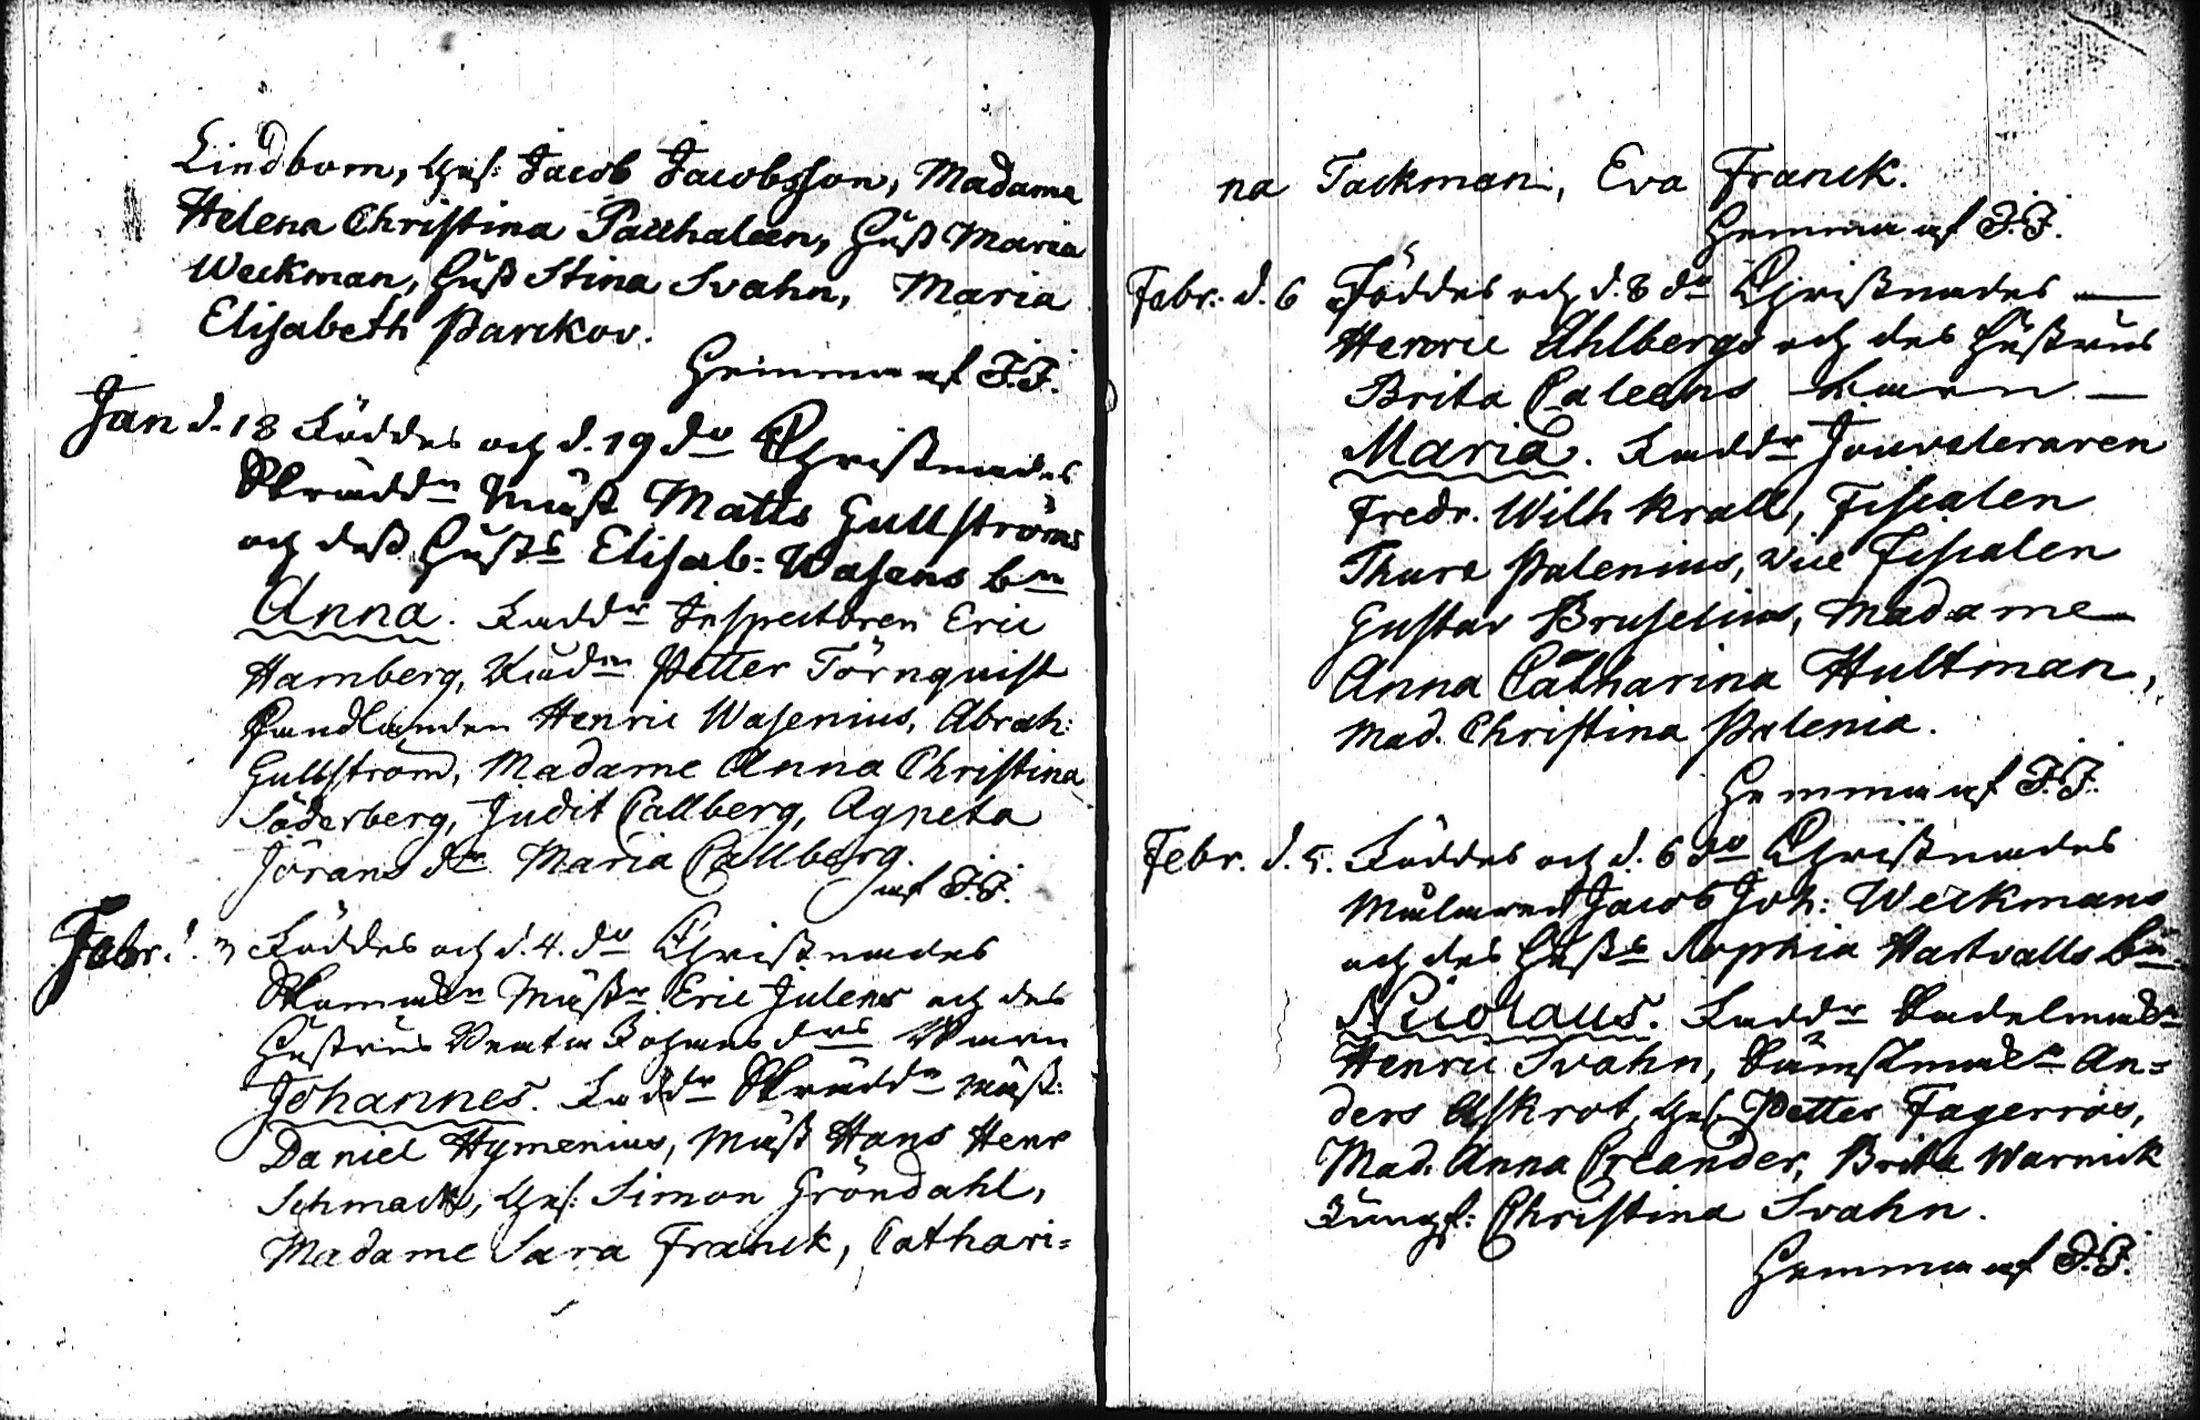 Lindbom, Ges: Jacob Jacobsson, Madame
Helena Christina Pacchaleen, Hust Maria
Weckman, Hust Stina Svahn, Maria
Elisabeth Parckov.
Hemma af J.J.
Jan d. 18 Föddes och d. 19 do Christnades
Skrädd:n Mäst Matts Gullströms
och dess Hust:s Elisab: Wasens b:n
Anna. Fadd:r Inspectoren Eric
Hamberg, Petter Törnquist
Handlanden Henric Wasenius, Abrah:
Gullström, Madame Anna Christina
Söderberg, Judit Callberg, Agneta
Jörans d:r Maria Callberg.
af J.J.
Febr. d. 3 Föddes och d. 4. do Christnades
Mäst:r Eric Julens och des
Hustrus Beata Johans d:rs Barn
Johannes. Fadd:r Skrädd:n Mäst:
Daniel Hymenius, Mäst Hans Henr
Schmack, Ges: Simon Gröndahl,
Madame Sara Franck, Cathari=
na Tackman, Eva Franck.
Hemma af J.J.
Febr. d. 6 Föddes och d. 8 do Christnades —
Henric Ahlbergs och des Hustrus
Brita Caleens barn —
Maria. Fadd:r Jouveleraren
Fredr. Wilh Krall, Fiscalen
Thure Palenius, Vice Fiscalen
Gustav Bruselius, Madame
Anna Catharina Hultman,
Mad. Christina Palenia.
Hemma af J.J.
Febr. d. 5. Föddes och d. 6 do Christnades
Målaren Jacob Joh: Weckmans
och des Hust:s Sophia Hartvalls b:n
Nicolaus. Fadd:r Sadelmak:n
Henric Svahn, An=
ders Askrot, Ges: Petter Fagerroos,
Mad. Anna Creander, Brita Warnick
Jungf: Christina Svahn.
Hemma af J.J.